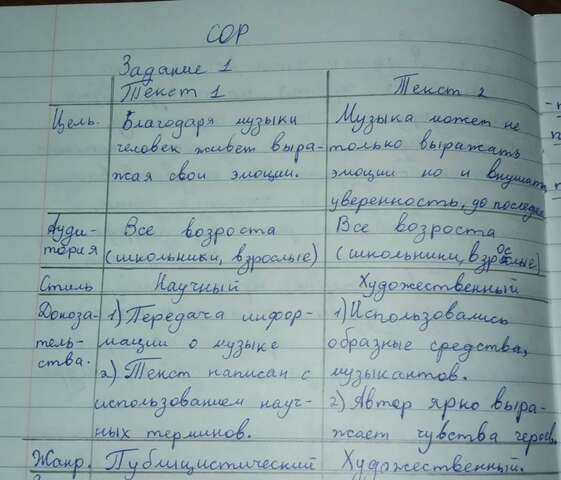 СОР
Задание 1
Текст 1
Текст 2
Цель.
Благодаря музыки
человек живет выра-
жая свои эмоции.
Музыка может не
только выражать
эмоции но и внушать
уверенность, до последне
Ауди-
тория
Все возроста
(школьники, взрослые)
Все возроста
(школьники, взрослые)
Стиль
Научный
Художественный
Доказа-
тель-
ства.
1) Передача инфор-
мации о музыке
2) Текст написан с
использованием науч-
ных терминов.
1) Использовались
образные средства,
музыкантов.
2) Автор ярко выра-
жает чувства героев.
Жанр.
Публицистический
Художественный.